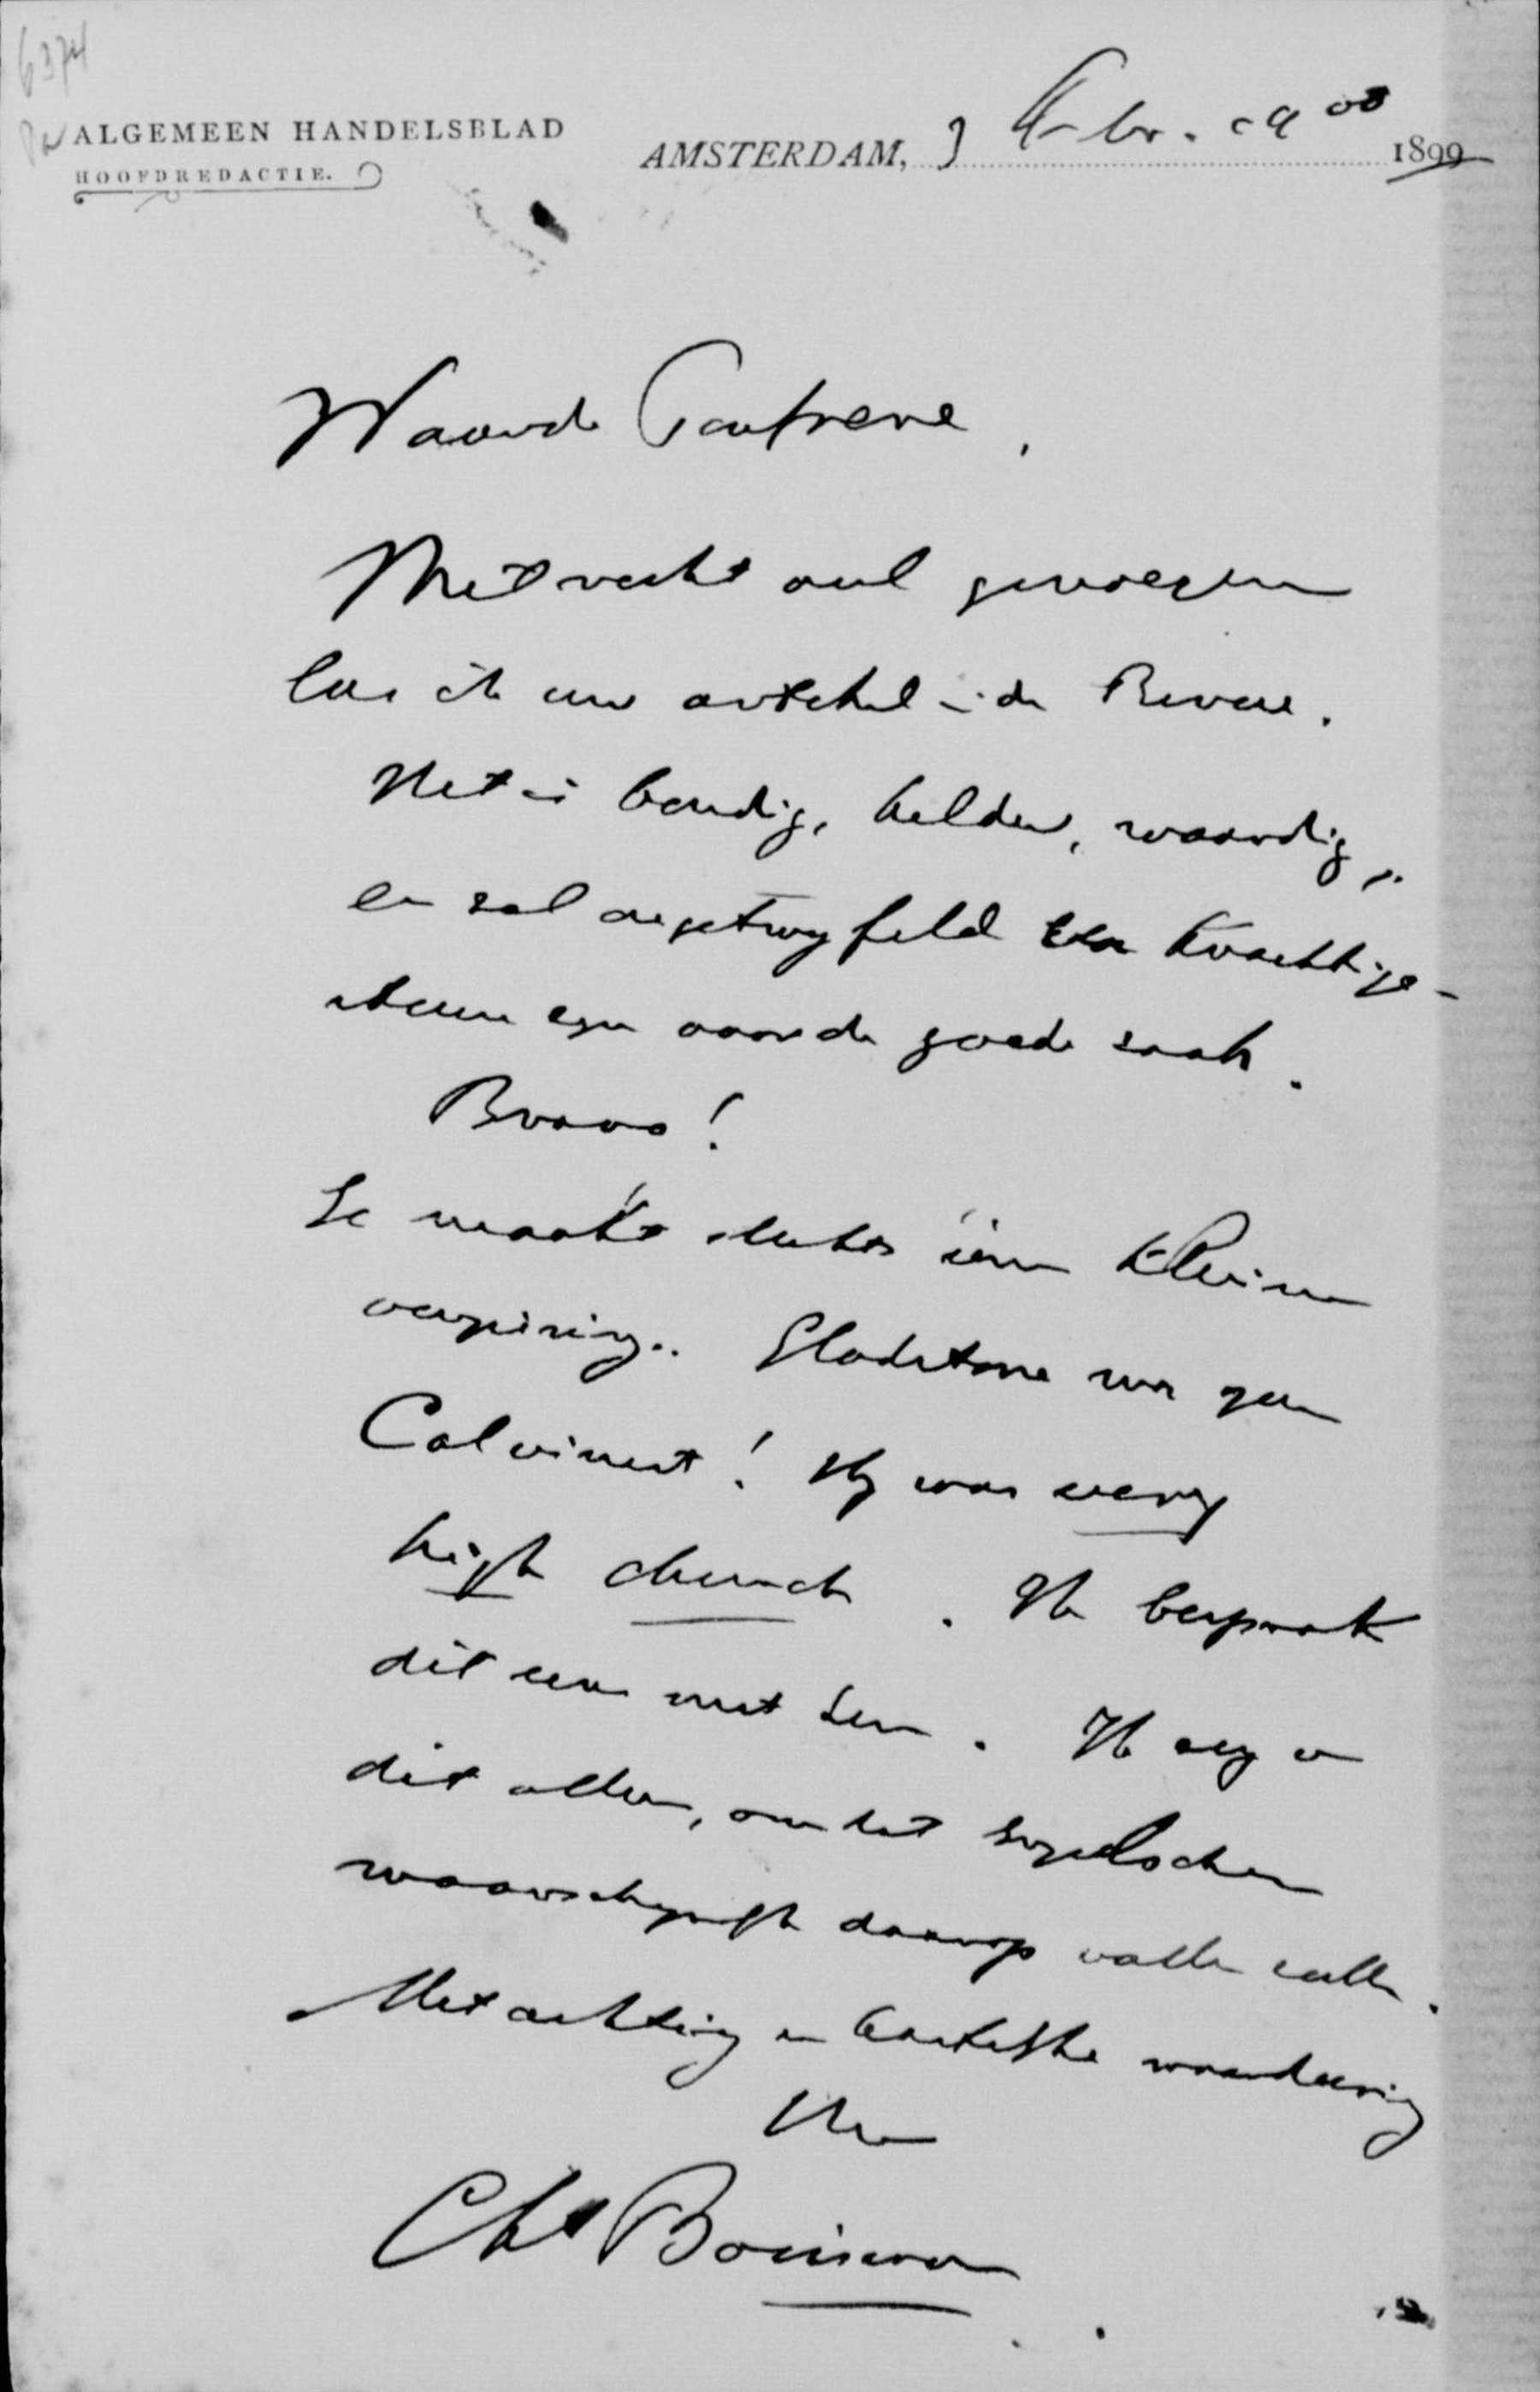 6374
ALGEMEEN HANDELSBLAD
HOOFDREDACTIE.
AMSTERDAM, 3 Febr. 1900 1899
Waarde Confrere,
Met recht veel genoegen
las ik uw artikel in de Revue.
Het is bondig, helder, waardig,
en zal ongetwyfeld een krachtige
steun zyn voor de goede zaak.
Bravo!
Ge maakt slechts één kleine
vergissing. Gladstone was geen
Calvinist! Hy was very
high church. Ik besprak
dit eens met hem. Ik zeg u
dit alleen, omdat Engelschen
waarschynlyk daarop vallen zullen.
Met achting en hartelyke waardeering
Uw
Chs Boissevain